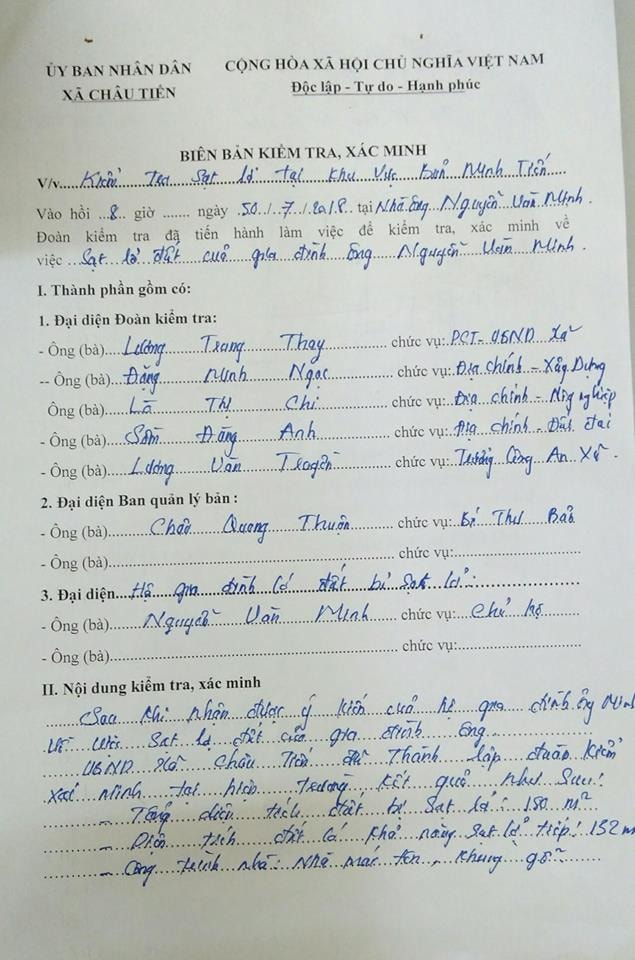 ỦY BAN NHÂN DÂN
XÃ CHÂU TIẾN
CỘNG HÒA XÃ HỘI CHỦ NGHĨA VIỆT NAM
Độc lập - Tự do - Hạnh phúc
BIÊN BẢN KIỂM TRA, XÁC MINH
V/v Kiểm Tra Sạt lở tại khu vực Bản Minh Tiến
Vào hồi 8 giờ ...... ngày 30/7/2018 tại Nhà ông Nguyễn Văn Minh.
Đoàn kiểm tra đã tiến hành làm việc để kiểm tra, xác minh về
việc Sạt lở đất của gia đình ông Nguyễn Văn Minh.
I. Thành phần gồm có:
1. Đại diện Đoàn kiểm tra:
- Ông (bà) Lương Trung Thay chức vụ: PCT- UBND Xã
-- Ông (bà) Đặng Minh Ngọc chức vụ: Địa chính - Xây Dựng
Ông (bà) Lô Thị Chi chức vụ: Địa chính - Nông nghiệp
- Ông (bà) Sầm Đăng Anh chức vụ: Địa chính - Đất đai
- Ông (bà) Lương Văn Truyền chức vụ: Trưởng Công An Xã
2. Đại diện Ban quản lý bản :
- Ông (bà) Quang Thuận chức vụ: Bí Thư Bản
- Ông (bà) chức vụ:
3. Đại diện Hộ gia đình có đất bị sạt lở:
- Ông (bà) Nguyễn Văn Minh chức vụ: Chủ hộ
- Ông (bà) chức vụ:
II. Nội dung kiểm tra, xác minh
Sau khi nhận được ý kiến của hộ gia đình ông Minh
Về việc Sạt lở đất của gia đình ông
UBND Xã Châu Tiến đã Thành lập đoàn kiểm
Xác Minh tại hiện trường kết quả như Sau:
- Tổng diện tích đất bị Sạt lở: 180 m²
- Diện tích đất có khả năng sạt lở tiếp: 132 m
- Công trình nhà: Nhà mái tôn, khung gỗ